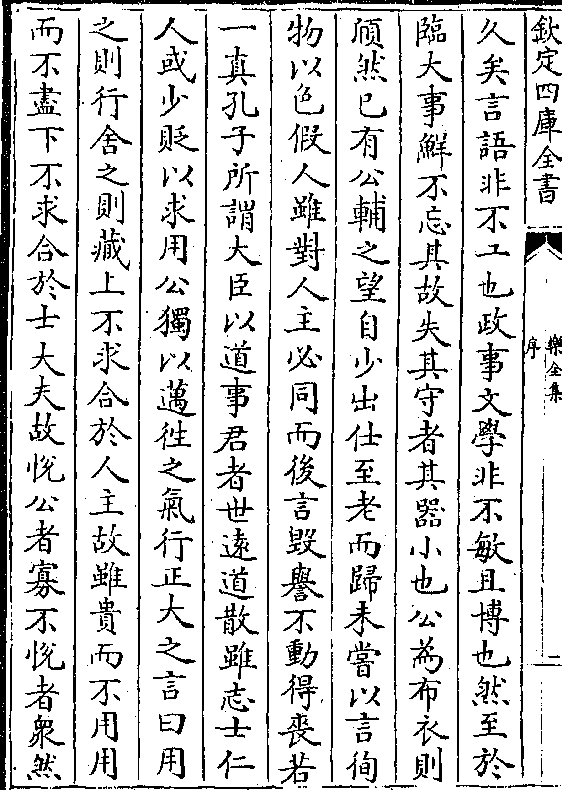 欽定四庫全書
樂全集
序
二
久矣言語非不工也政事文學非不敏且博也然至於
臨大事鮮不忘其故失其守者其器小也公為布衣則
頎然已有公輔之望自少出仕至老而歸未嘗以言徇
物以色假人雖對人主必同而後言毀譽不動得喪若
一真孔子所謂大臣以道事君者世遠道散雖志士仁
人或少貶以求用公獨以邁徃之氣行正大之言曰用
之則行舍之則藏上不求合於人主故雖貴而不用用
而不盡下不求合於士大夫故恱公者寡不恱者衆然